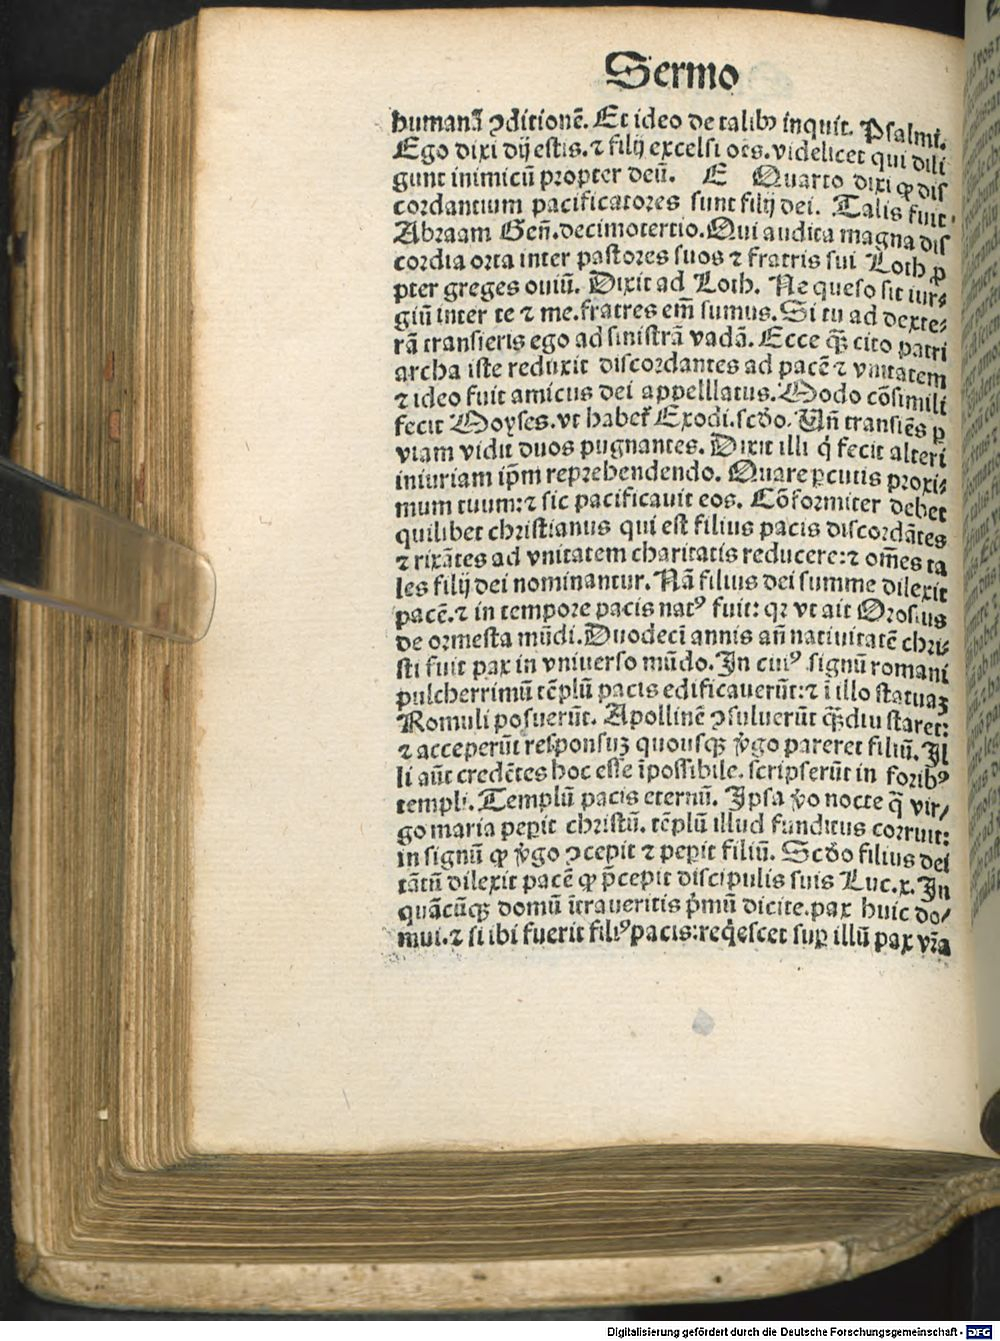 Sermo
humanā ꝯditionē. Et ideo de talibꝰ inquit. Psalmi.
Ego dixi dij estis. ⁊ filij excelsi oēs. videlicet qui dili
gunt inimicū propter deū. E Quarto dixi ꝙ dis
cordantium pacificatores sunt filij dei. Talis fuit
Abraam Geñ. decimotertio. Qui audita magna dis
cordia orta inter pastores suos ⁊ fratris sui Loth ꝓ
pter greges ouiū. Dixit ad Loth. Ne queso sit iur⸗
giū inter te ⁊ me. fratres em̄ sumus. Si tu ad dexte⸗
rā transieris ego ad sinistrā vadā. Ecce q̄ꝫ cito patri
archa iste reduxit discordantes ad pacē ⁊ vnitatem
⁊ ideo fuit amicus dei appelllatus. Modo cōsimili
fecit Moyses. vt habet̄ Exodi. scd̄o. Vn̄ transiēs ꝑ
viam vidit duos pugnantes. Dixit illi q́ fecit alteri
iniuriam ip̄m reprehendendo. Quare ꝑcutis proxi⸗
mum tuum: ⁊ sic pacificauit eos. Cōformiter debet
quilibet christianus qui est filius pacis discordātes
⁊ rixātes ad vnitatem charitatis reducere: ⁊ om̄es ta
les filij dei nominantur. Nā filius dei summe dilexit
pacē. ⁊ in tempore pacis natꝰ fuit: qꝛ vt ait Orosius
de ormesta mūdi. Duodecī annis an̄ natiuitatē chri⸗
sti fuit pax in vniuerso mūdo. In cuiꝰ signū romani
pulcherrimū tēplū pacis edificauerūt: ⁊ ī illo statuaꝫ
Romuli posuerūt. Apollinē ꝯsuluerūt q̄ꝫdiu staret:
⁊ acceperūt responsuꝫ quousqꝫ v̓go pareret filiū. Il
li aūt credētes hoc esse īpossibile. scripserūt in foribꝰ
templi. Templū pacis eternū. Ipsa v̓o nocte q̄ vir⸗
go maria peꝑit christū. tēplū illud funditus corruit:
in signū ꝙ v̓go ꝯcepit ⁊ peꝑit filiū. Scd̄o filius dei
tātū dilexit pacē ꝙ p̄cepit discipulis suis Luc. x. In
quācūqꝫ domū ītraueritis p̓mū dicite. pax huic do⸗
mui. ⁊ si ibi fuerit filiꝰ pacis: req̓escet suꝑ illū pax vr̄a
Digitalisierung gefördert durch die Deutsche Forschungsgemeinschaft - DFG